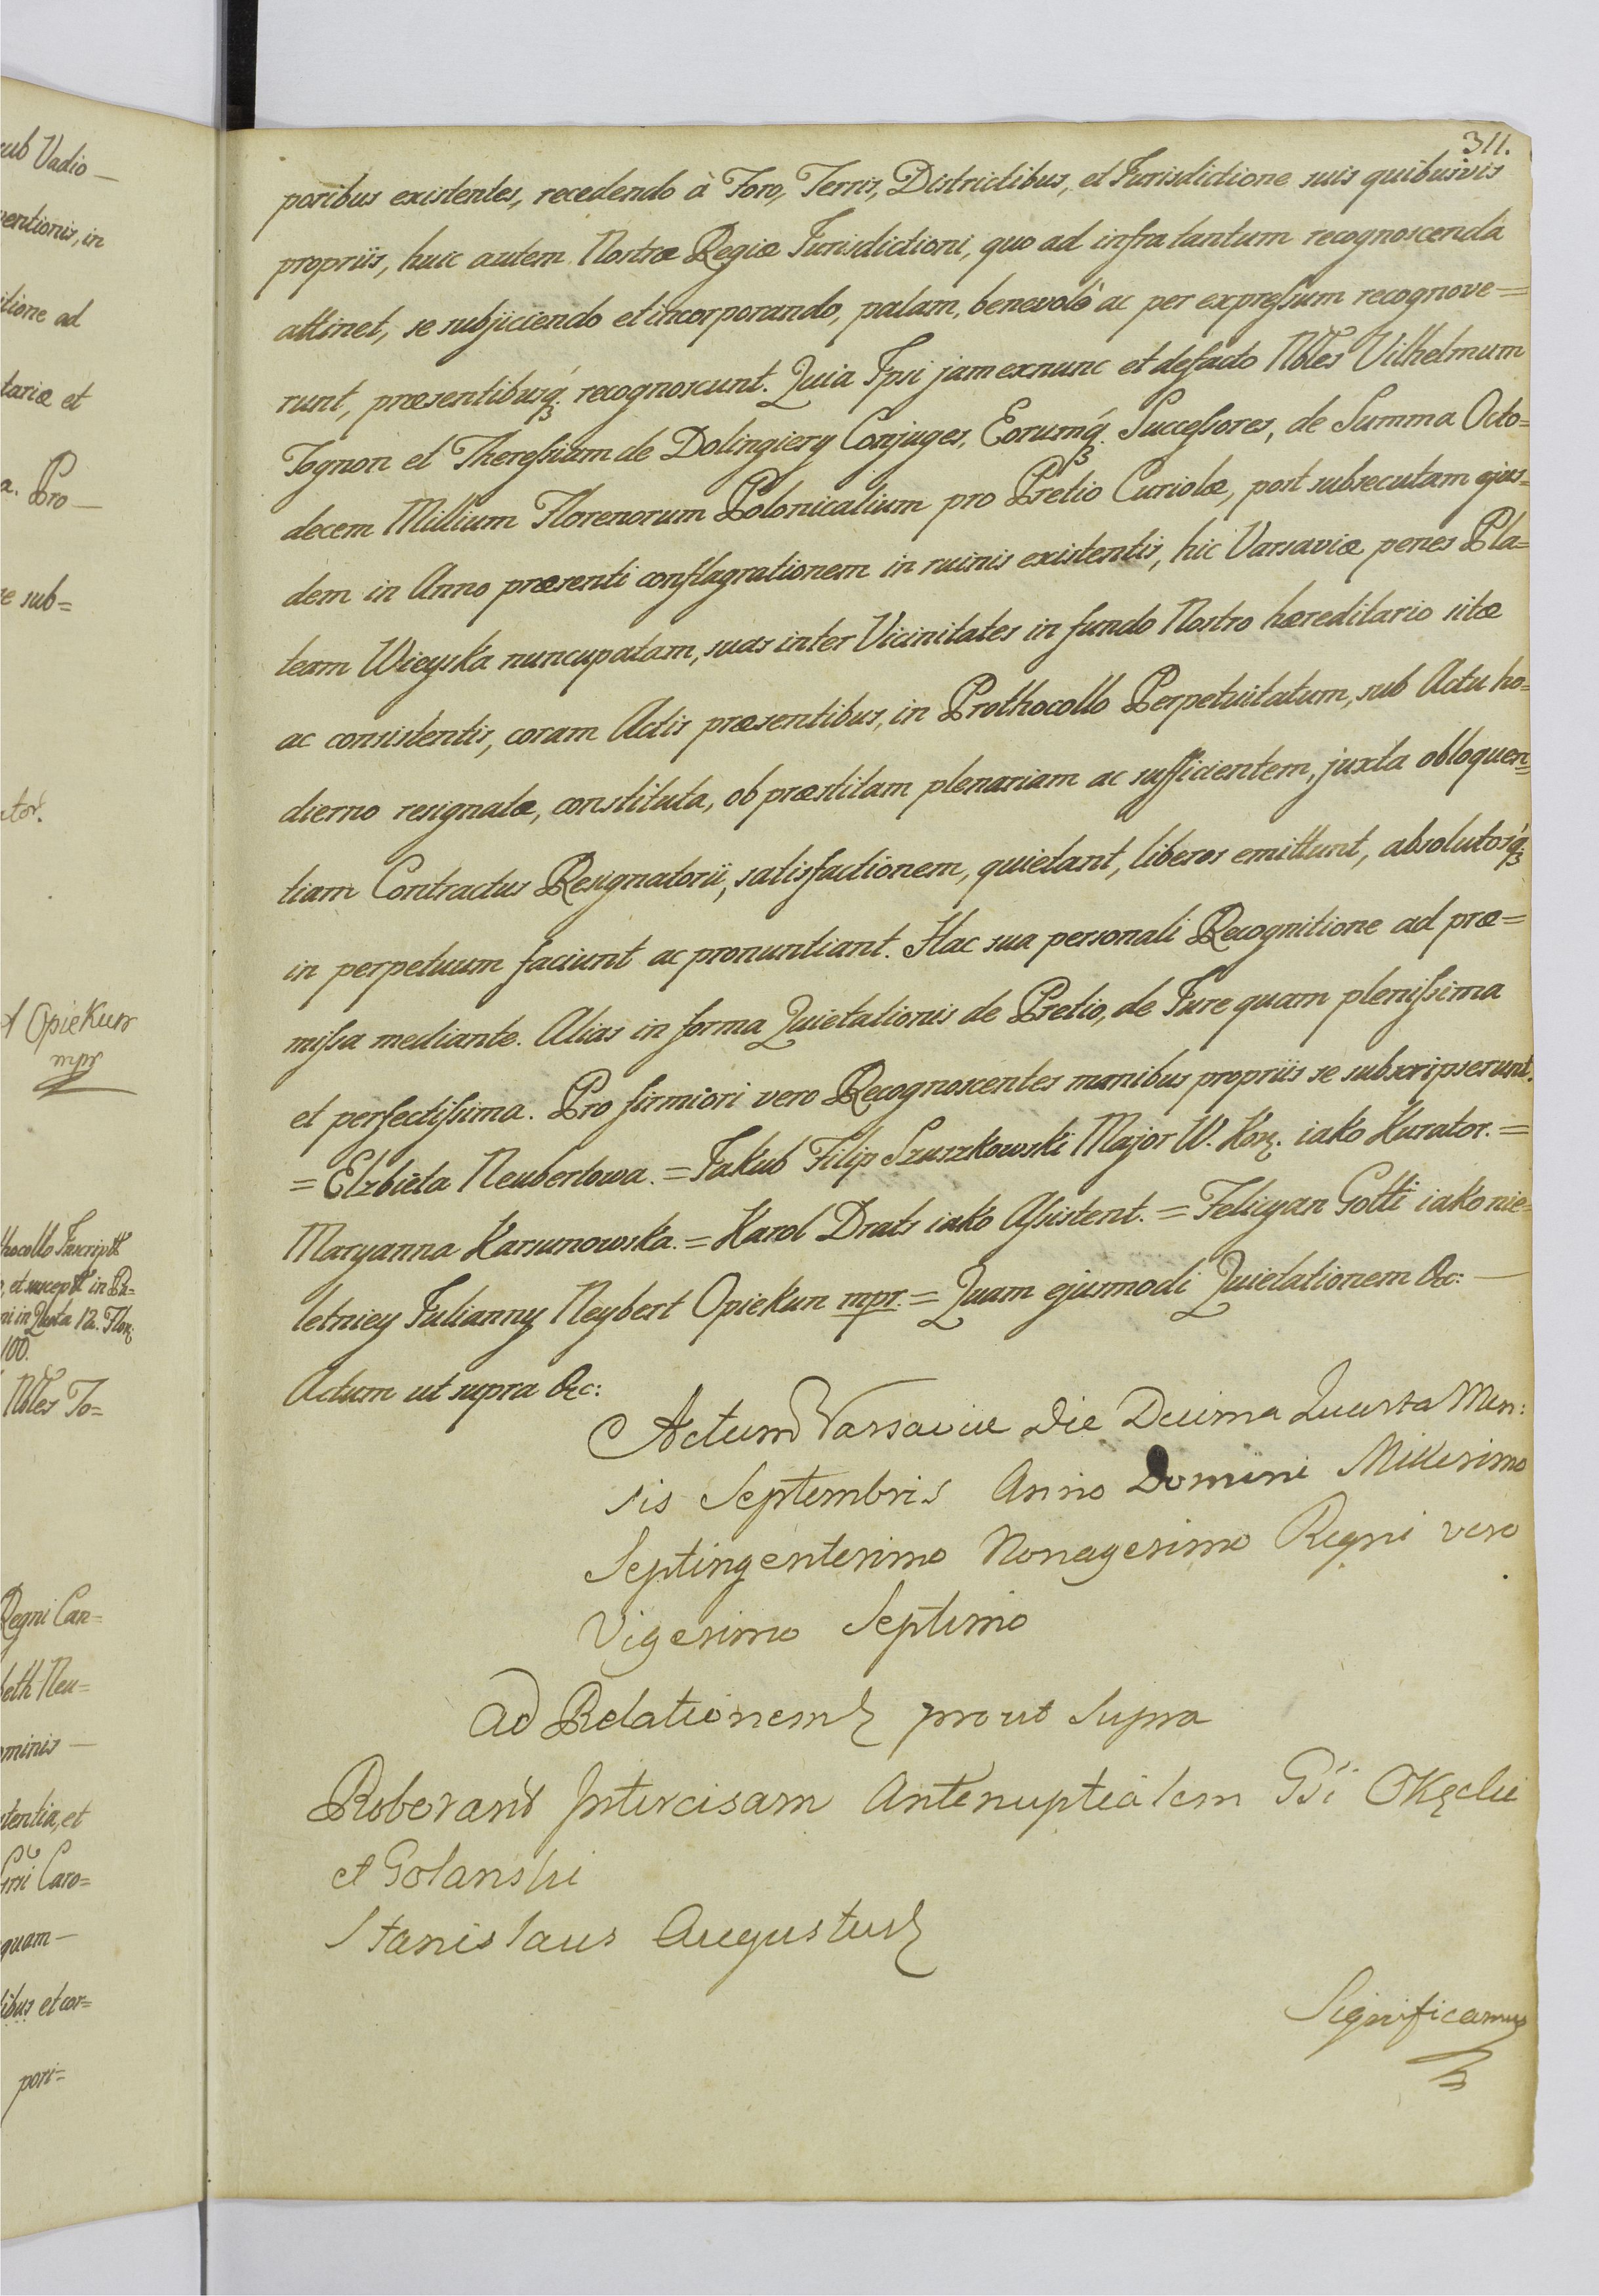 cub Vadio —
ventionis, in
itione ad
tariæ et
a. Pro —
re sub=
ator.
A Opiekun
mpr
thocollo Inscript
et suscept in Pa=
ni in Quota 12. Flor.
100.
Nbles To=
Regni Can=
beth Neu=
ominis —
stentia, et
Caro=
quam —
libus et cor=
pori=
311.
poribus existentes, recedendo à Foro, Terris, Districtibus, et Jurisdictione suis quibusvis
propriis, huic autem Nostræ Regiæ Jurisdictioni, quo ad infra tantum recognoscenda
attinet, se subjiciendo et incorporando, palam, benevolè ac per expressum recognove=
runt, præsentibusq́ recognoscunt. Quia Ipsi jam exnunc et defacto Nbles Vilhelmum
Tognon et Theressiam de Dolingiery Conjuges, Eorumq́ Successores, de Summa Octo=
decem Millium Florenorum Polonicalium pro Pretio Curiolæ, post subsecutam ejus=
dem in Anno præsenti conflagrationem in ruinis existentis, hic Varsaviæ penes Pla=
team Wieyska nuncupatam, suas inter Vicinitates in fundo Nostro hæreditario sitæ
ac consistentis, coram Actis præsentibus, in Prothocollo Perpetuitatum, sub Actu ho=
dierno resignatæ, constituta, ob præstitam plenariam ac sufficientem, juxta obloquen=
tiam Contractus Resignatorii, satisfactionem, quietant, liberos emittunt, absolutosq́
in perpetuum faciunt ac pronuntiant. Hac sua personali Recognitione ad præ=
missa mediante. Alias in forma Quietationis de Pretio, de Jure quam plenissima
et perfectissima. Pro firmiori vero Recognoscentes manibus propriis se subscripserunt.
= Elzbieta Neubertowa. = Jakub Filip Szuszkowski Major W. Kor. iako Kurator. =
Maryanna Karsunowska. = Karol Drats iako Assistent. = Felicyan Gotti iako nie=
letniey Julianny Neybert Opiekun mpr. = Quam ejusmodi Quietationem &c: —
Actum ut supra &c:
Actum Varsaviæ Die Decima Quarta Men:
sis Septembris Anno Domini Millesimo
Septingentesimo Nonagesimo Regni vero
Vigesimo Septimo
Ad Relationem prout supra
Roborant Intercisam Antenuptialem Okęcki
et Golanski
Stanislaus Augustus
Significamus